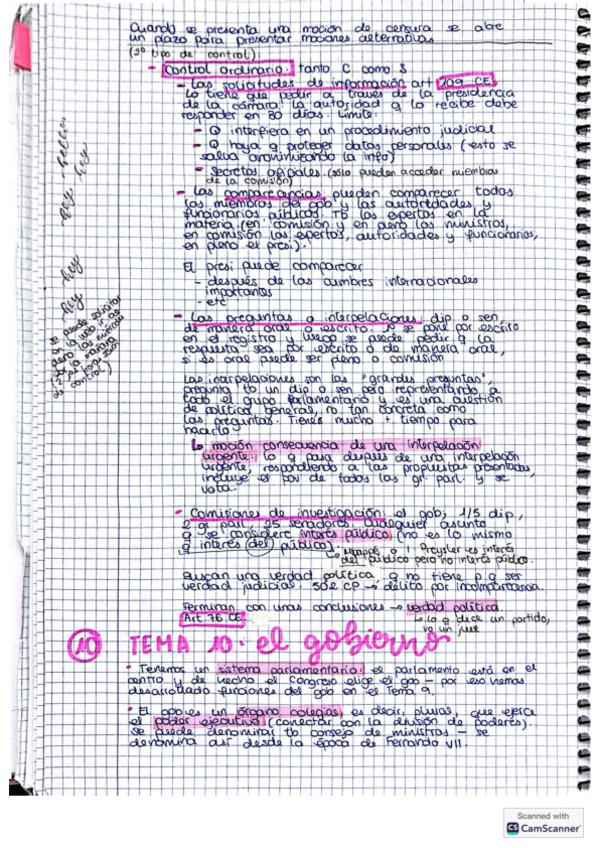 Cuando se presenta una moción de censura se abre
un plazo para presentar mociones alternativas
(2º tipo de control)
- Control ordinario: tanto C como S
- Las solicitudes de información art 109 CE.
Lo tiene que pedir a través de la presidencia
de la cámara. La autoridad q lo recibe debe
responder en 30 días. Límite:
- Q interfiera en un procedimiento judicial
- Q haya q proteger datos personales (esto se
salva anonimizando la info)
- Secretos oficiales (sólo pueden acceder miembros
de la comisión)
- Las comparecencias pueden comparecer todos
los miembros del gob y las autoridades y
funcionarios públicos. Tb los expertos en la
materia (en comisión y en pleno los ministros,
en comisión los expertos, autoridades y funcionarios,
en pleno el presi).
El presi puede comparecer
- después de las cumbres internacionales
importantes
- etc
- Las preguntas o interpelaciones: dip o sen,
de manera oral o escrito. Se pone por escrito
en el registro y luego se puede pedir q la
respuesta sea por escrito o de manera oral,
si es oral puede ser pleno o comisión
Las interpelaciones son las "grandes preguntas",
pregunta tb un dip o sen pero representando a
todo el grupo parlamentario y es una cuestión
de política general, no tan concreta como
las preguntas. Tienes mucho + tiempo para
hacerlo
↳ moción consecuencia de una interpelación
urgente: lo q pasa después de una interpelación
urgente, respondiendo a las propuestas presentadas,
incluye el pov de todos los gr. parl. y se
vota.
- Comisiones de investigación: el gob, 1/5 dip,
2 gr parl, 25 senadores. Cualquier asunto
q se considere interés público (no es lo mismo
q interés del público)
↳ Mbappé o I Preysler es interés
del público pero no interés público.
Buscan una verdad política, q no tiene p q ser
verdad judicial. 502 CP → delito por incomparecencia.
Terminan con unas conclusiones → verdad política
↳ lo q dice un partido,
no un juez
Art 76 CE
10 TEMA 10. el gobierno
· Tenemos un sistema parlamentario: el parlamento está en el
centro y de hecho el Congreso elige el gob - por eso hemos
desarrollado funciones del gob en el Tema 9.
· El gob es un órgano colegiado es decir, plural, que ejerce
el poder ejecutivo (conectar con la división de poderes).
Se puede denominar tb consejo de ministros - se
denomina así desde la época de Fernando VII.
hey
hey
Scanned with
CS CamScanner